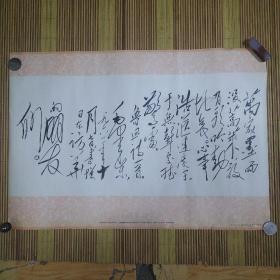 萬家墨面
没蒿萊敢
有歌吟動
地哀心事
浩茫連廣宇
于無聲處聽
驚雷
魯迅詩一首
毛澤東
一九六一年十
月七日書贈
日本訪華
的朋友
們。